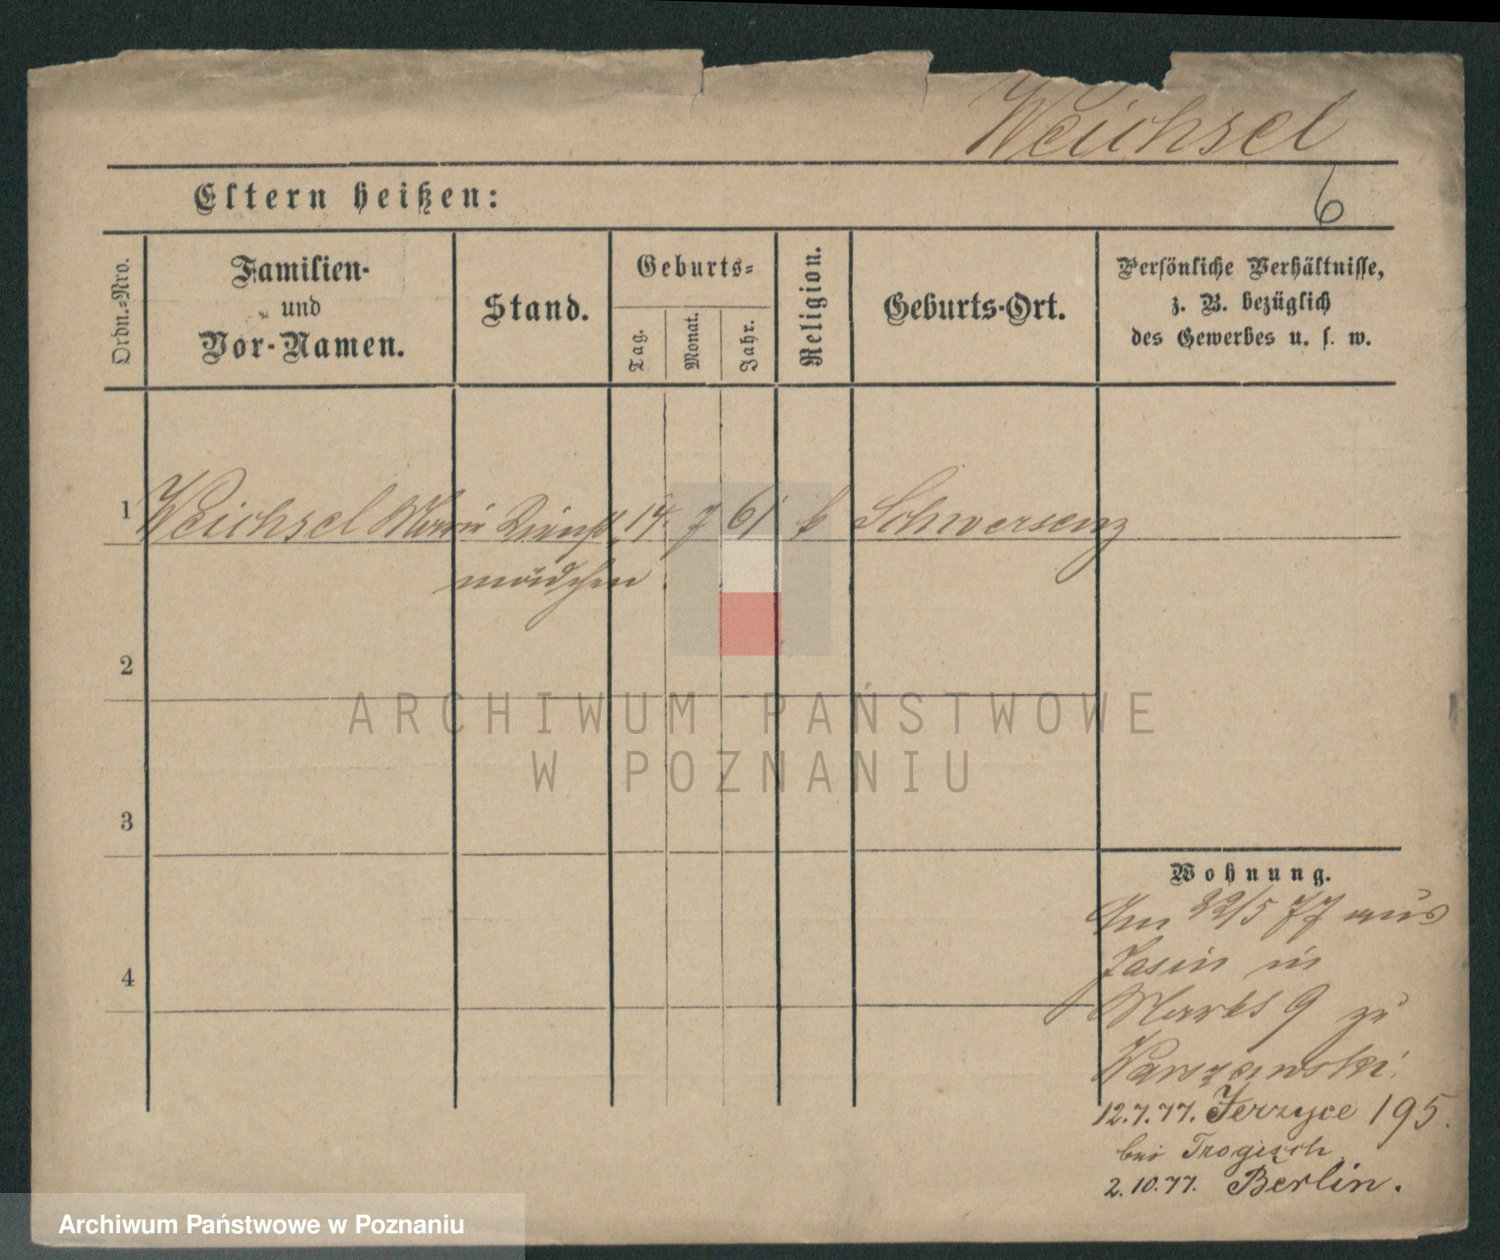 Weichsel
Eltern heißen:
6
Ordn.-Nro.
Familien-
und
Vor-Namen.
Stand.
Geburts-
Tag.
Monat.
Jahr.
Religion.
Geburts-Ort.
Persönliche Verhältnisse,
z. B. bezüglich
des Gewerbes u. s. w.
1 Weichsel Marie Dienst 14. 7 61 k Schwersenz
mädchen.
2
3
4
ARCHIWUM PAŃSTWOWE
W POZNANIU
Wohnung.
Am 22/5 77 aus
Jasin in
Markt 9 zu
Warszawski.
12.7.77. Jerzyce 195.
bei Trogisch
2.10.77. Berlin.
Archiwum Państwowe w Poznaniu